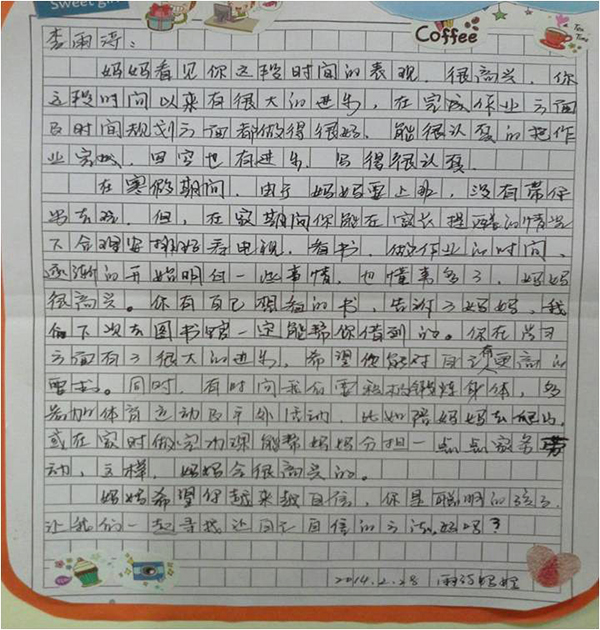 Sweet girl
Coffee
Tea Time
李雨海:
妈妈看见你这段时间的表现,很高兴,你
这段时间以来有很大的进步,在完成作业方面
及时间规划方面都做得很好,能很认真的把作
业完成,田字也有进步,写得很认真。
在寒假期间,由于妈妈要上班,没有带你
出去玩,但,在家期间你能在家长提醒的情况
下合理安排好看电视、看书、做作业的时间,
逐渐的开始明白一些事情,也懂事多了,妈妈
很高兴。你有自己想看的书,告诉了妈妈,我
们下次去图书馆一定能帮你借到的。你在学习
方面有了很大的进步,希望你能对自己有更高的
要求。同时,有时间我们要积极锻炼身体,多
参加体育运动及户外活动,比如陪妈妈去爬山,
或在家时做完功课能帮妈妈分担一点点家务劳
动,这样,妈妈会很高兴的。
妈妈希望你越来越自信,你是聪明的孩子,
让我们一起寻找还回自信的方法好吗?
2014.2.28 妈妈